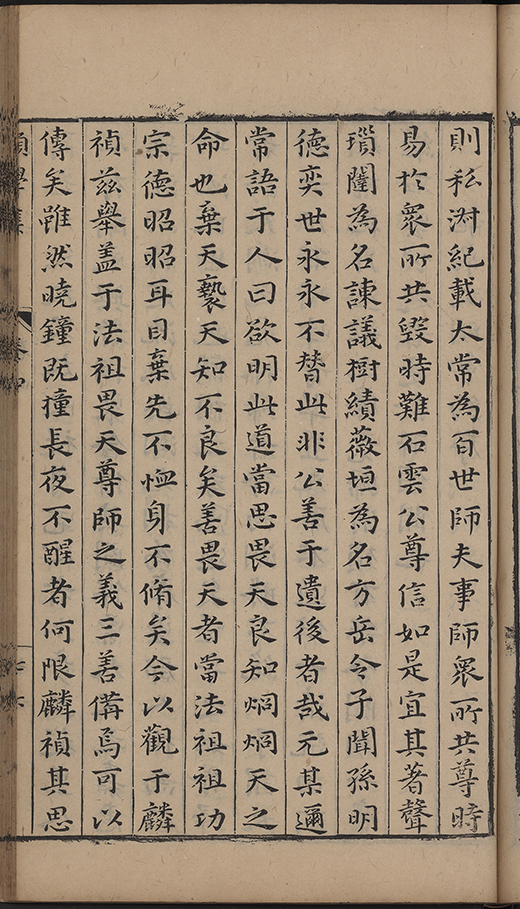 則私淑紀載太常為百世師夫事師眾所共尊時
易於眾所共毀時難石雲公尊信如是宜其著聲
瑣闥為名諫議樹績薇垣為名方岳令子聞孫明
德奕世永永不替此非公善于遺後者哉元某邇
常語于人曰欲明此道當思畏天良知炯炯天之
命也棄天褻天知不良矣善畏天者當法祖祖功
宗德昭昭耳目棄先不恤身不脩矣今以觀于麟
禎兹舉盖于法祖畏天尊師之義三善備焉可以
傳矣雖然曉鐘既撞長夜不醒者何限麟禎其思